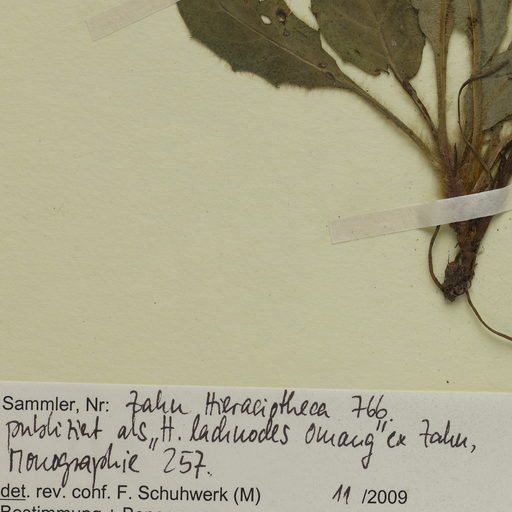 Sammler, Nr: Zahn Hieraciotheca 766.
publiziert als "H. lachnodes Omang" ex Zahn,
Monographie 257.
det. rev. conf. F. Schuhwerk (M) 11 /2009